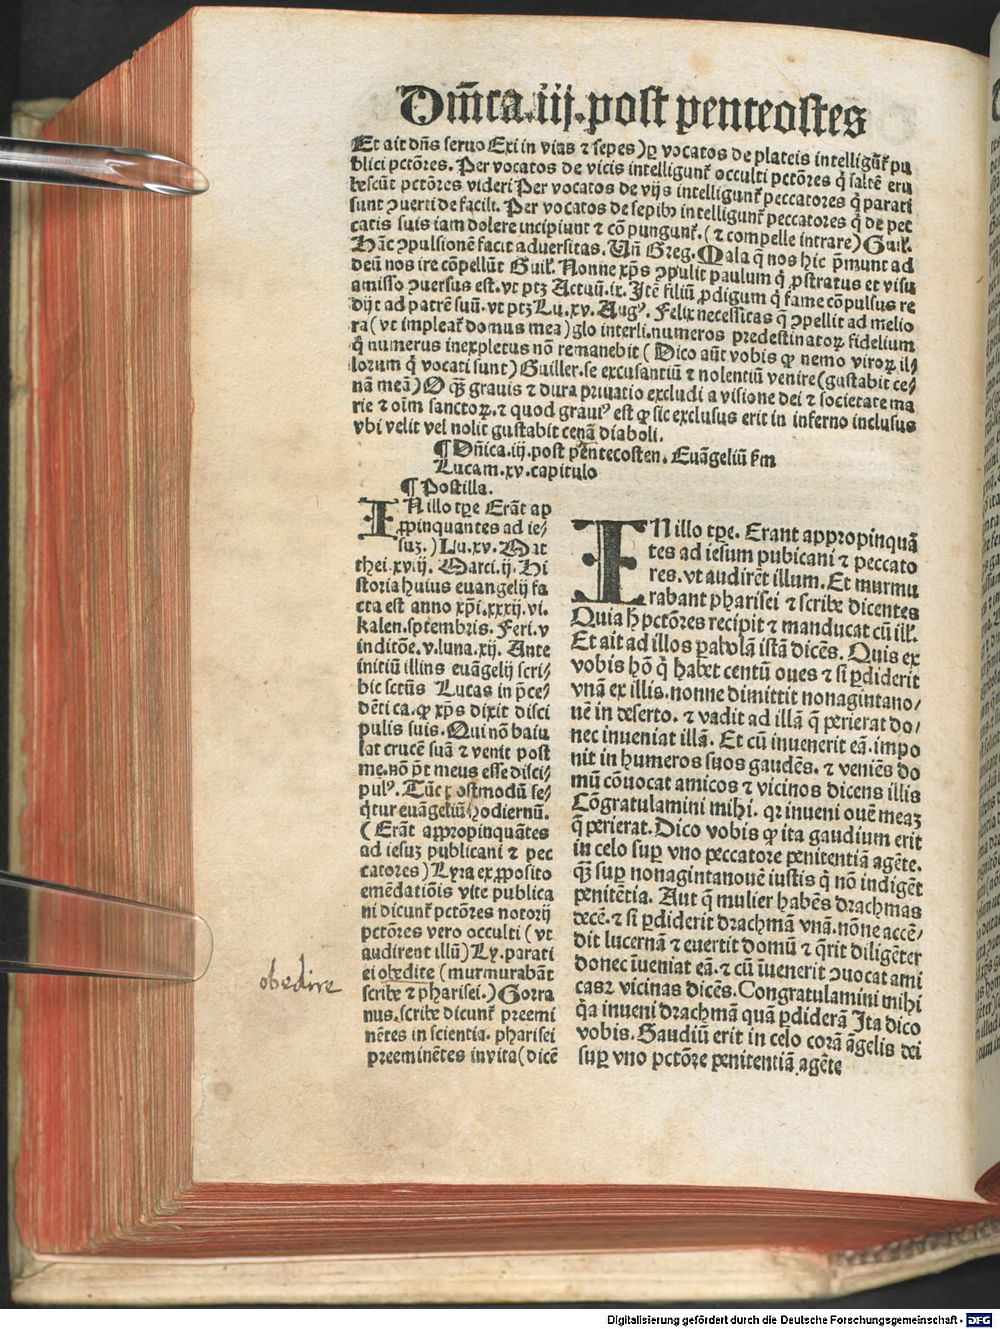 Dm̄ca.iij.post penteostes
Et ait dn̄s seruo Exi in vias ⁊ sepes)ꝑ vocatos de plateis intelligūt᷑ pu
blici pctōres. Per vocatos de vicis intelligunt᷑ occulti pctōres q̇ saltē eru
bescūt pctōres videri Per vocatos de vijs intelligunt᷑ peccatores q̇ parati
sunt ꝯuerti de facili. Per vocatos de sepibꝰ intelligunt᷑ peccatores q̇ de pec
catis suis iam dolere incipiunt ⁊ cō pungunt᷑.(⁊ compelle intrare)Guil̕.
Hāc ꝯpulsionē facit aduersitas. Un̄ Greg. Mala q̄ nos hic p̄munt ad
deū nos ire cōpellūt Guil̕. Nonne xp̄s ꝯpulit paulum q̇ ꝓstratus et visu
amisso ꝯuersus est. vt ptꝫ Actuū.ix. Itē filiū ꝓdigum q̇ fame cōpulsus re
dijt ad patrē suū. vt ptꝫ Lu.xv. Augꝰ. Felix necessitas q̄ ꝯpellit ad melio
ra(vt impleat᷑ domus mea)glo interli.numeros predestinatoꝝ fidelium
q̇ numerus inexpletus nō remanebit(Dico aūt vobis ꝙ nemo viroꝝ il⸗
lorum q̇ vocati sunt)Guiller.se excusantiū ⁊ nolentiū venire(gustabit ce⸗
nā meā)O qͣꝫ grauis ⁊ dura priuatio excludi a visione dei ⁊ societate ma
rie ⁊ oīm sanctoꝝ.⁊ quod grauiꝰ est ꝙ sic exclusus erit in inferno inclusus
vbi velit vel nolit gustabit cenā diaboli.
¶ Dn̄ica.iij.post pentecosten. Euāgeliū ẜm
Lucam.xv.capitulo
¶ Postilla.
IN illo tꝑe Erāt ap
ꝓpinquantes ad ie⸗
suꝫ.)Lu.xv. Mat
thei.xviij. Marci.ij. Hi
storia huius euangelij fa
cta est anno xp̄i.xxxij.vi.
kalen.sptembris. Feri.v
inditōe.v.luna.xij. Ante
initiū illius euāgelij scri⸗
bit sctūs Lucas in p̄ce⸗
dēti ca.ꝙ xp̄s dixit disci
pulis suis. Qui nō baiu
lat crucē suā ⁊ venit post
me.nō pt̄ meus esse disci⸗
pulꝰ. Tūc postmodū se⸗
q̇tur euāgeliū hodiernū.
(Erāt appropinquātes
ad iesuꝫ publicani ⁊ pec
catores)Lyra ex ꝓposito
emēdatiōis vite publica
ni dicunt᷑ pctōres notorij
pctōres vero occulti(vt
audirent illū)Ly.parati
ei obedite(murmurabāt
scribe ⁊ pharisei.)Gorra
nus.scribe dicunt᷑ preemi
nētes in scientia. pharisei
preeminētes in vita(dicē
obedire
IN illo tꝑe. Erant appropinquā
tes ad iesum pubicani ⁊ peccato
res.vt audirēt illum. Et murmu
rabant pharisei ⁊ scribe dicentes
Quia h̄ pctōres recipit ⁊ manducat cū ill̕.
Et ait ad illos ꝑabolā istā dicēs. Quis ex
vobis hō q̇ habet centū oues ⁊ si ꝑdiderit
vnā ex illis.nonne dimittit nonagintano⸗
nē in deserto.⁊ vadit ad illā q̄ perierat do⸗
nec inueniat illā. Et cū inuenerit eā.impo
nit in humeros suos gaudēs.⁊ veniēs do
mū cōuocat amicos ⁊ vicinos dicens illis
Cōgratulamini mihi.qꝛ inueni ouē meaꝫ
q̄ perierat. Dico vobis ꝙ ita gaudium erit
in celo suꝑ vno peccatore penitentiā agēte.
qͣꝫ suꝑ nonagintanouē iustis q̇ nō indigēt
penitētia. Aut q̄ mulier habēs drachmas
decē.⁊ si ꝑdiderit drachmā vnā.nōne accē⸗
dit lucernā ⁊ euertit domū ⁊ q̄rit diligēter
donec īueniat eā.⁊ cū īuenerit ꝯuocat ami
cas⁊ vicinas dicēs. Congratulamini mihi
q̇a inueni drachmā quā ꝑdiderā Ita dico
vobis. Gaudiū erit in celo corā āgelis dei
suꝑ vno pctōre penitentiā agēte
Digitalisierung gefördert durch die Deutsche Forschungsgemeinschaft - DFG